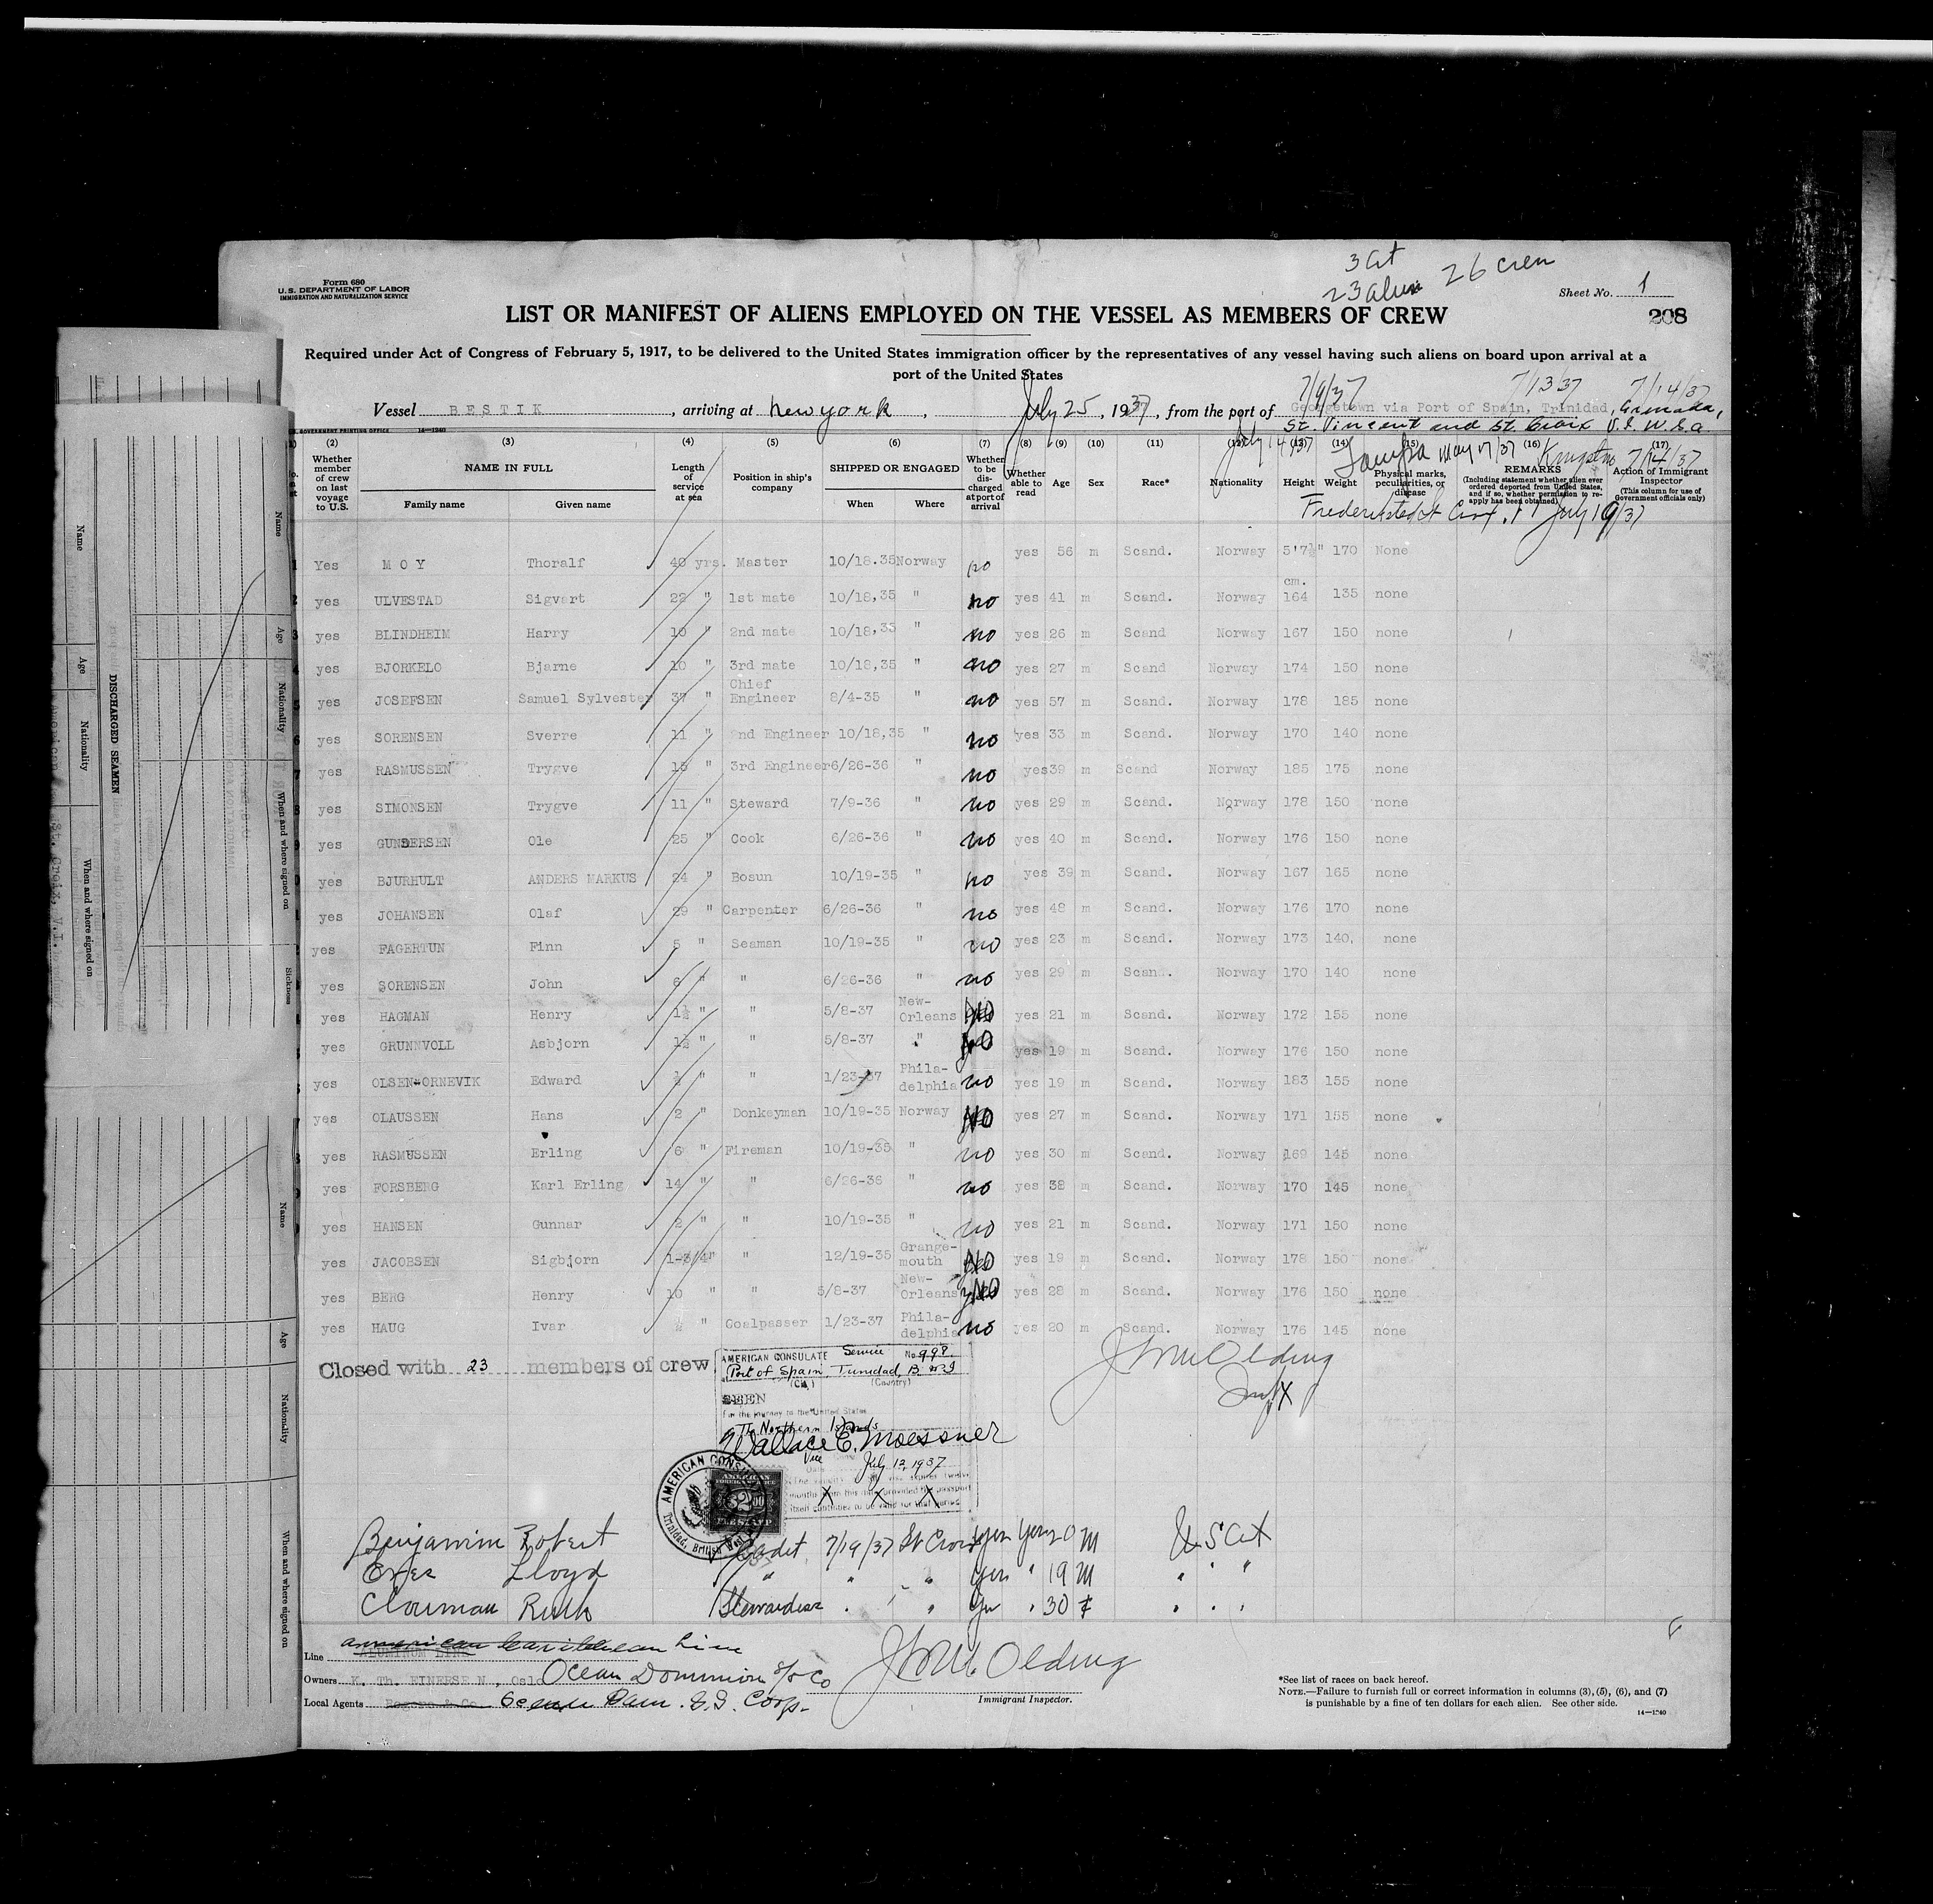 3 Cit
23 alien 26 crew
Form 680
U.S. DEPARTMENT OF LABOR
IMMIGRATION AND NATURALIZATION SERVICE
Sheet No. 1
LIST OR MANIFEST OF ALIENS EMPLOYED ON THE VESSEL AS MEMBERS OF CREW
208
Required under Act of Congress of February 5, 1917, to be delivered to the United States immigration officer by the representatives of any vessel having such aliens on board upon arrival at a
port of the United States
7/9/37 7/13/37 7/14/37
Vessel BESTIK, arriving at new york, July 25, 1937, from the port of Georgetown via Port of Spain, Trinidad, Grenada,
St. Vincent and St. Croix V.I. U.S.A.
GOVERNMENT PRINTING OFFICE 14—1240
(2) (3) (4) (5) (6) (7) (8) (9) (10) (11) (13) (14) (15) (16) (17)
Whether member of crew on last voyage to U.S. NAME IN FULL Family name Given name Length of service at sea Position in ship's company SHIPPED OR ENGAGED When Where Whether to be discharged at port of arrival Whether able to read Age Sex Race* Nationality Height Weight Physical marks, peculiarities, or disease REMARKS (Including statement whether alien ever ordered deported from United States, and if so, whether permission to reapply has been obtained) Action of Immigrant Inspector (This column for use of Government officials only)
July 19/37
Yes MOY Thoralf 40 yrs. Master 10/18.35 Norway no yes 56 m Scand. Norway 5'7½" 170 None
yes ULVESTAD Sigvart 22 " 1st mate 10/18,35 " no yes 41 m Scand. Norway cm. 164 135 none
yes BLINDHEIM Harry 10 " 2nd mate 10/18,35 " no yes 26 m Scand Norway 167 150 none
yes BJORKELO Bjarne 10 " 3rd mate 10/18,35 " no yes 27 m Scand Norway 174 150 none
yes JOSEFSEN Samuel Sylvester 37 " Chief Engineer 8/4-35 " no yes 57 m Scand. Norway 178 185 none
yes SORENSEN Sverre 11 " 2nd Engineer 10/18,35 " no yes 33 m Scand. Norway 170 140 none
yes RASMUSSEN Trygve 15 " 3rd Engineer 6/26-36 " no yes 39 m Scand Norway 185 175 none
yes SIMONSEN Trygve 11 " Steward 7/9-36 " no yes 29 m Scand. Norway 178 150 none
yes GUNDERSEN Ole 25 " Cook 6/26-36 " no yes 40 m Scand. Norway 176 150 none
yes BJURHULT ANDERS MARKUS 24 " Bosun 10/19-35 " no yes 39 m Scand. Norway 167 165 none
yes JOHANSEN Olaf 29 " Carpenter 6/26-36 " no yes 48 m Scand. Norway 176 170 none
yes FAGERTUN Finn 5 " Seaman 10/19-35 " no yes 23 m Scand. Norway 173 140, none
yes SORENSEN John 6 " " 6/26-36 " no yes 29 m Scand. Norway 170 140 none
yes HAGMAN Henry 1½ " " 5/8-37 New-Orleans NO yes 21 m Scand. Norway 172 155 none
yes GRUNNVOLL Asbjorn 1½ " " 5/8-37 " NO yes 19 m Scand. Norway 176 150 none
yes OLSEN-ORNEVIK Edward ½ " " 1/23-37 Phila-delphia no yes 19 m Scand. Norway 183 155 none
yes OLAUSSEN Hans 2 " Donkeyman 10/19-35 Norway NO yes 27 m Scand. Norway 171 155 none
yes RASMUSSEN Erling 6 " Fireman 10/19-35 " no yes 30 m Scand. Norway 169 145 none
yes FORSBERG Karl Erling 14 " " 6/26-36 " no yes 38 m Scand. Norway 170 145 none
yes HANSEN Gunnar 2 " " 10/19-35 " no yes 21 m Scand. Norway 171 150 none
yes JACOBSEN Sigbjorn 1-3/4" " 12/19-35 Grange-mouth NO yes 19 m Scand. Norway 178 150 none
yes BERG Henry 10 " " 5/8-37 New-Orleans NO yes 28 m Scand. Norway 176 150 none
yes HAUG Ivar ½ " Coalpasser 1/23-37 Phila-delphia no yes 20 m Scand. Norway 176 145 none
Closed with 23 members of crew
AMERICAN CONSULATE Service No 998
Port of Spain, Trinidad, B.W.I
(City) (Country)
SEEN
For the journey to the United States
Wallace E. Moessner
Vice
July 12, 1937
AMERICAN FOREIGN SERVICE $2.00 FEE STAMP
J M Olding
Benjamin Robert Cadet 7/19/37 St Croix yes yes 20 M U S Cit
Lloyd " " " yes " 19 M " " "
Ruth Stewardess " " yes " 30 f " " "
Line American Caribbean Line
Owners K. Th. EINERSEN, Oslo Ocean Dominion S/S Co
Local Agents Ocean Dom. S.S. Corp.
Immigrant Inspector.
*See list of races on back hereof.
NOTE.—Failure to furnish full or correct information in columns (3), (5), (6), and (7)
is punishable by a fine of ten dollars for each alien. See other side.
14—1240
DISCHARGED SEAMEN
Name
Age
Nationality
When and where signed on
Sickness
Name
Age
Nationality
When and where signed on